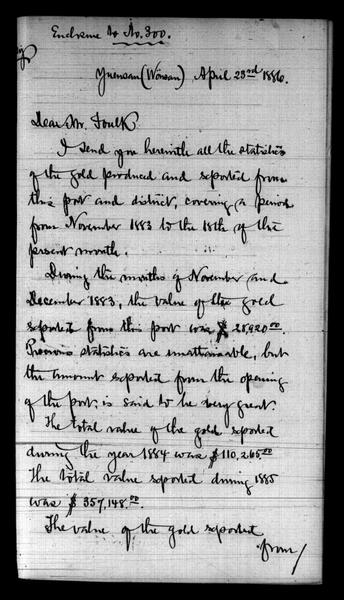 Enclosure to No. 300.
Yuensan (Wonsan) April 23rd 1886.
Dear Mr. Foulk
I send you herewith all the statistics
of the gold produced and exported from
this port and district, covering a period
from November 1883 to the 18th of the
present month.
During the months of November and
December 1883, the value of the gold
exported from this port was $ 28,920.00.
Previous statistics are unattainable, but
the amount exported from the opening
of the port, is said to be very great.
The total value of the gold exported
during the year 1884 was $110,265.00
The total value exported during 1885
was $ 357,148.00.
The value of the gold exported
from/